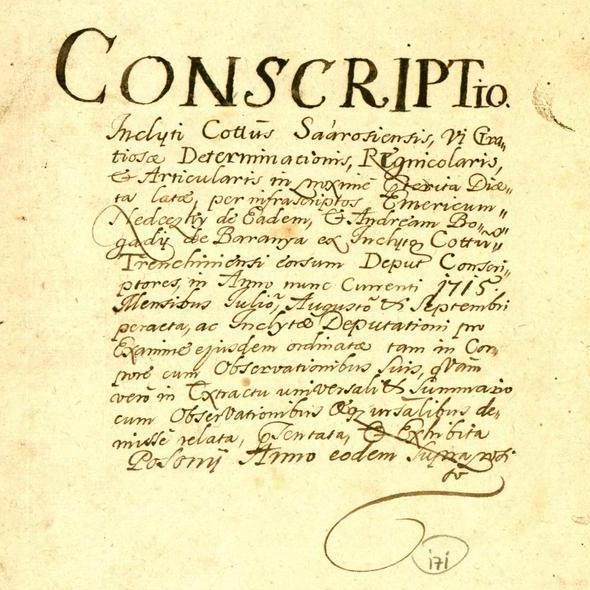 CONSCRIPTIO.
Inclÿti Cottus Saárosiensis, Vi Gra„
tiosæ Determinacionis, Regnicolaris,
& Articularis in proximè præterita Diæ„
ta latæ, per infrascriptos Emericum„
Nedeczky de Eadem, & Andream Bo„
gadÿ de Baranya ex Inclÿto Cottu„
Trenchiniensi eorsum Deput Conscri„
ptores, in Anno nunc Currenti 1715.
Mensibus Julio, Augustô & Septembri
peracta, ac Inclÿtæ Deputationi pro
Examine ejusdem ordinatæ tam in Cor„
pore cum Observationibus suis, quàm
verò in Extractu universali & Summario
cum Observationibus æq ursalibus de„
missè relata, præsentata, & Exhibita
Posonÿ Anno eodem supra noti
to
171